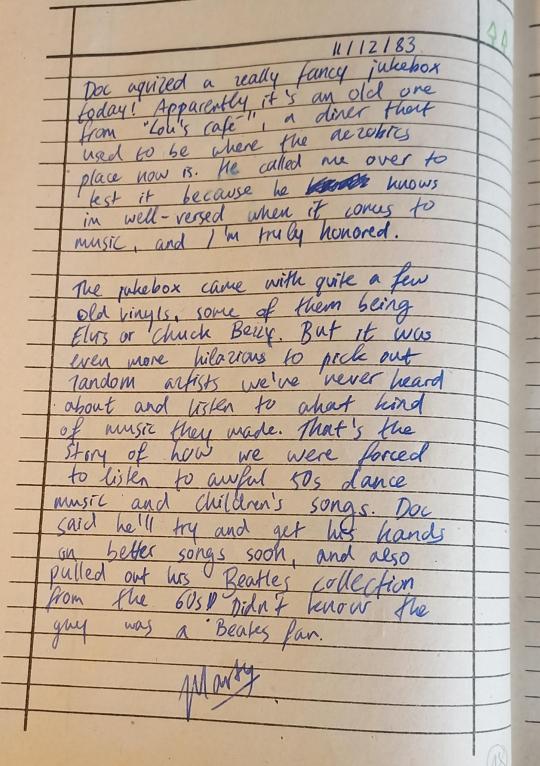 11/12/83
Doc aquired a really fancy jukebox
today! Apparently it's an old one
from "Lou's café", a diner that
used to be where the aerobics
place now is. He called me over to
test it because he knows
im well-versed when it comes to
music, and I'm truly honored.
The jukebox came with quite a few
old vinyls, some of them being
Elvis or Chuck Berry. But it was
even more hilarious to pick out
random artists we've never heard
about and listen to what kind
of music they made. That's the
story of how we were forced
to listen to awful 50s dance
music and children's songs. Doc
said he'll try and get his hands
on better songs soon, and also
pulled out his Beatles collection
from the 60s! Didn't know the
guy was a Beatles fan.
Marty